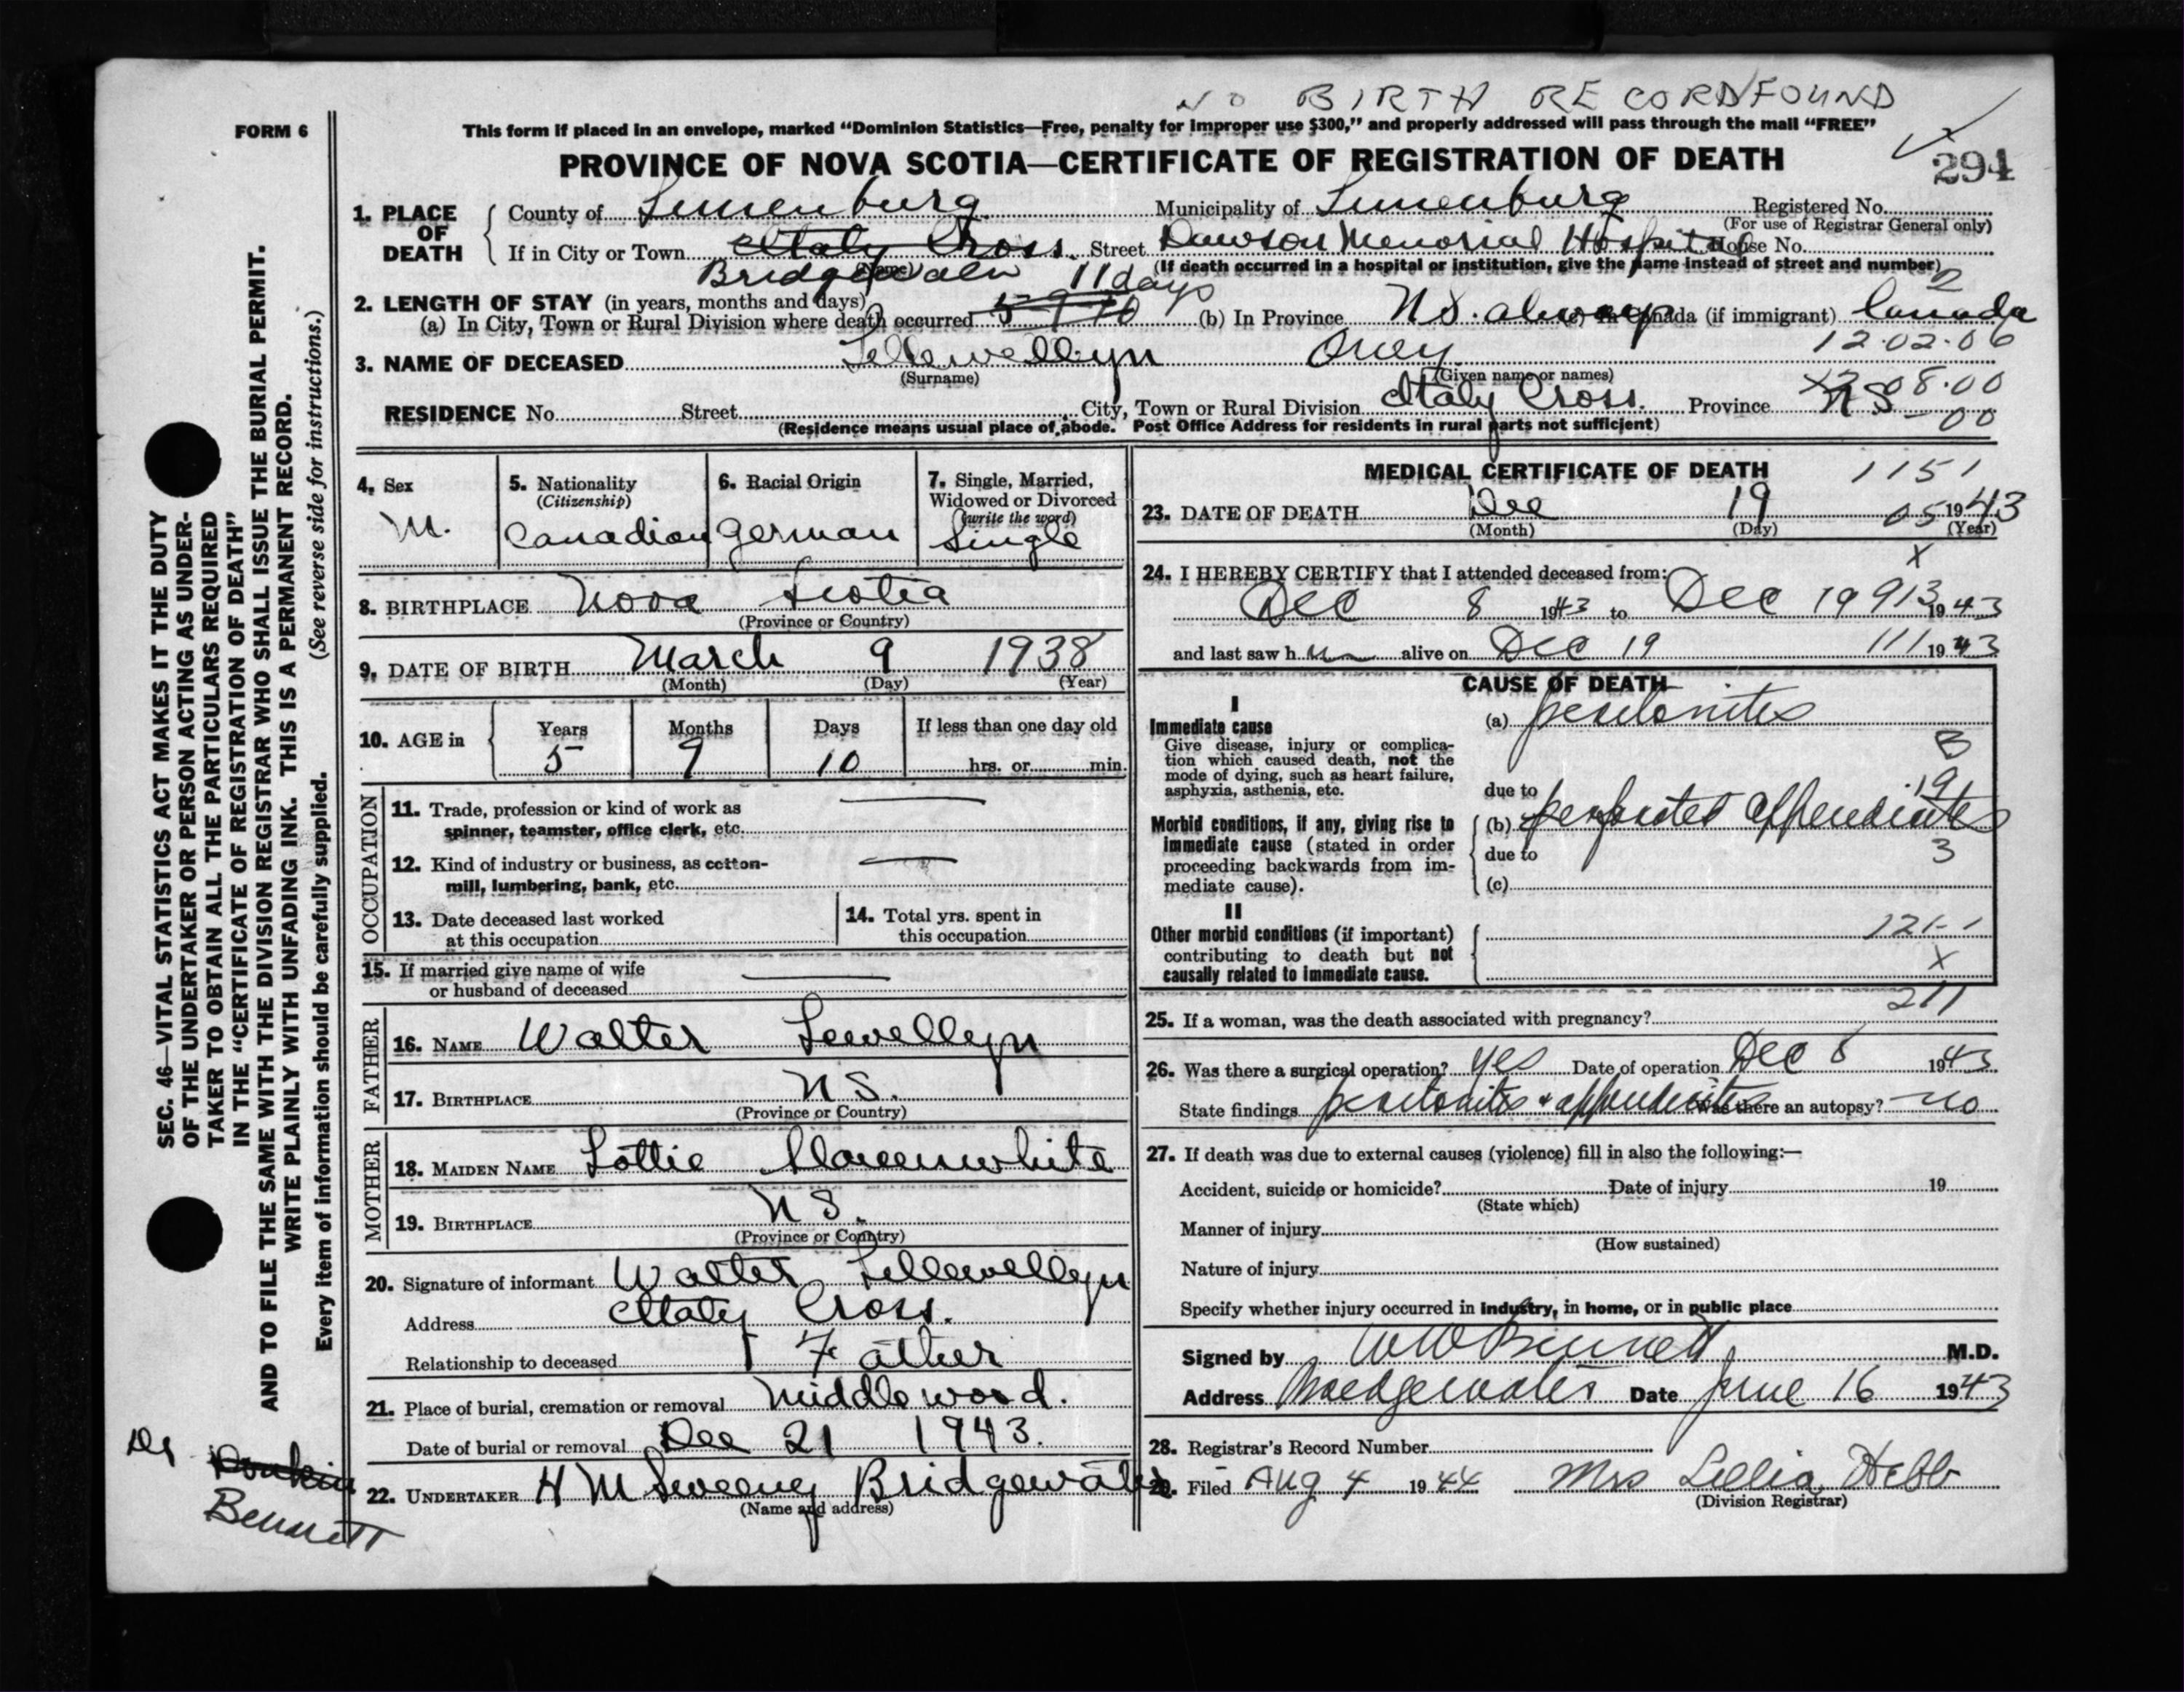 NO BIRTH RECORD FOUND
FORM 6
This form if placed in an envelope, marked “Dominion Statistics—Free, penalty for improper use $300,” and properly addressed will pass through the mail “FREE”
PROVINCE OF NOVA SCOTIA—CERTIFICATE OF REGISTRATION OF DEATH
294
1. PLACE OF DEATH
County of Lunenburg Municipality of Lunenburg Registered No.
(For use of Registrar General only)
If in City or Town Italy Cross Street Dawson Memorial Hospital House No.
(Name) (If death occurred in a hospital or institution, give the name instead of street and number)
Bridgewater 11 days 2
2. LENGTH OF STAY (in years, months and days)
(a) In City, Town or Rural Division where death occurred 5 9 10 (b) In Province NS. always (c) In Canada (if immigrant) Canada
12.02.06
3. NAME OF DECEASED Lellewellyn
(Surname) (Given name or names)
08.00
RESIDENCE No. Street City, Town or Rural Division Italy Cross. Province NS
-00
(Residence means usual place of abode. Post Office Address for residents in rural parts not sufficient)
4. Sex
M.
5. Nationality
(Citizenship)
Canadian
6. Racial Origin
German
7. Single, Married,
Widowed or Divorced
(write the word)
Single
8. BIRTHPLACE Nova Scotia
(Province or Country)
9. DATE OF BIRTH March 9 1938
(Month) (Day) (Year)
10. AGE in Years Months Days If less than one day old
5 9 10 hrs. or min.
OCCUPATION
11. Trade, profession or kind of work as
spinner, teamster, office clerk, etc.
12. Kind of industry or business, as cotton-
mill, lumbering, bank, etc.
13. Date deceased last worked
at this occupation
14. Total yrs. spent in
this occupation
15. If married give name of wife
or husband of deceased
FATHER
16. NAME Walter Lewellyn
17. BIRTHPLACE NS.
(Province or Country)
MOTHER
18. MAIDEN NAME Lottie
19. BIRTHPLACE NS.
(Province or Country)
20. Signature of informant Walter Lellewellyn
Address Italy Cross.
Relationship to deceased Father
21. Place of burial, cremation or removal Middlewood.
Date of burial or removal Dec 21 1943.
22. UNDERTAKER H M Sweeney Bridgewater
(Name and address)
MEDICAL CERTIFICATE OF DEATH 1151
23. DATE OF DEATH Dec 19 05 1943
(Month) (Day) (Year)
X
24. I HEREBY CERTIFY that I attended deceased from:
Dec 8 1943 to Dec 19 913 1943
and last saw h im alive on Dec 19 111 1943
CAUSE OF DEATH
I
Immediate cause
Give disease, injury or complica-
tion which caused death, not the
mode of dying, such as heart failure,
asphyxia, asthenia, etc.
(a) peritonitis
B
19
due to
Morbid conditions, if any, giving rise to
immediate cause (stated in order
proceeding backwards from im-
mediate cause).
(b) perforated appendicitis
due to 3
(c)
II
Other morbid conditions (if important)
contributing to death but not
causally related to immediate cause.
121-1
X
211
25. If a woman, was the death associated with pregnancy?
26. Was there a surgical operation? yes Date of operation Dec 8 1943
State findings peritonitis + appendicitis Was there an autopsy? no
27. If death was due to external causes (violence) fill in also the following:—
Accident, suicide or homicide? Date of injury 19
(State which)
Manner of injury
(How sustained)
Nature of injury
Specify whether injury occurred in industry, in home, or in public place
Signed by W W Bennett M.D.
Address Bridgewater Date June 16 1943
28. Registrar's Record Number
29. Filed Aug 4 1944 Mrs Lellia Hebb
(Division Registrar)
SEC. 46—VITAL STATISTICS ACT MAKES IT THE DUTY
OF THE UNDERTAKER OR PERSON ACTING AS UNDER-
TAKER TO OBTAIN ALL THE PARTICULARS REQUIRED
IN THE “CERTIFICATE OF REGISTRATION OF DEATH”
AND TO FILE THE SAME WITH THE DIVISION REGISTRAR WHO SHALL ISSUE THE BURIAL PERMIT.
WRITE PLAINLY WITH UNFADING INK. THIS IS A PERMANENT RECORD.
Every item of information should be carefully supplied. (See reverse side for instructions.)
Dr
Bennett